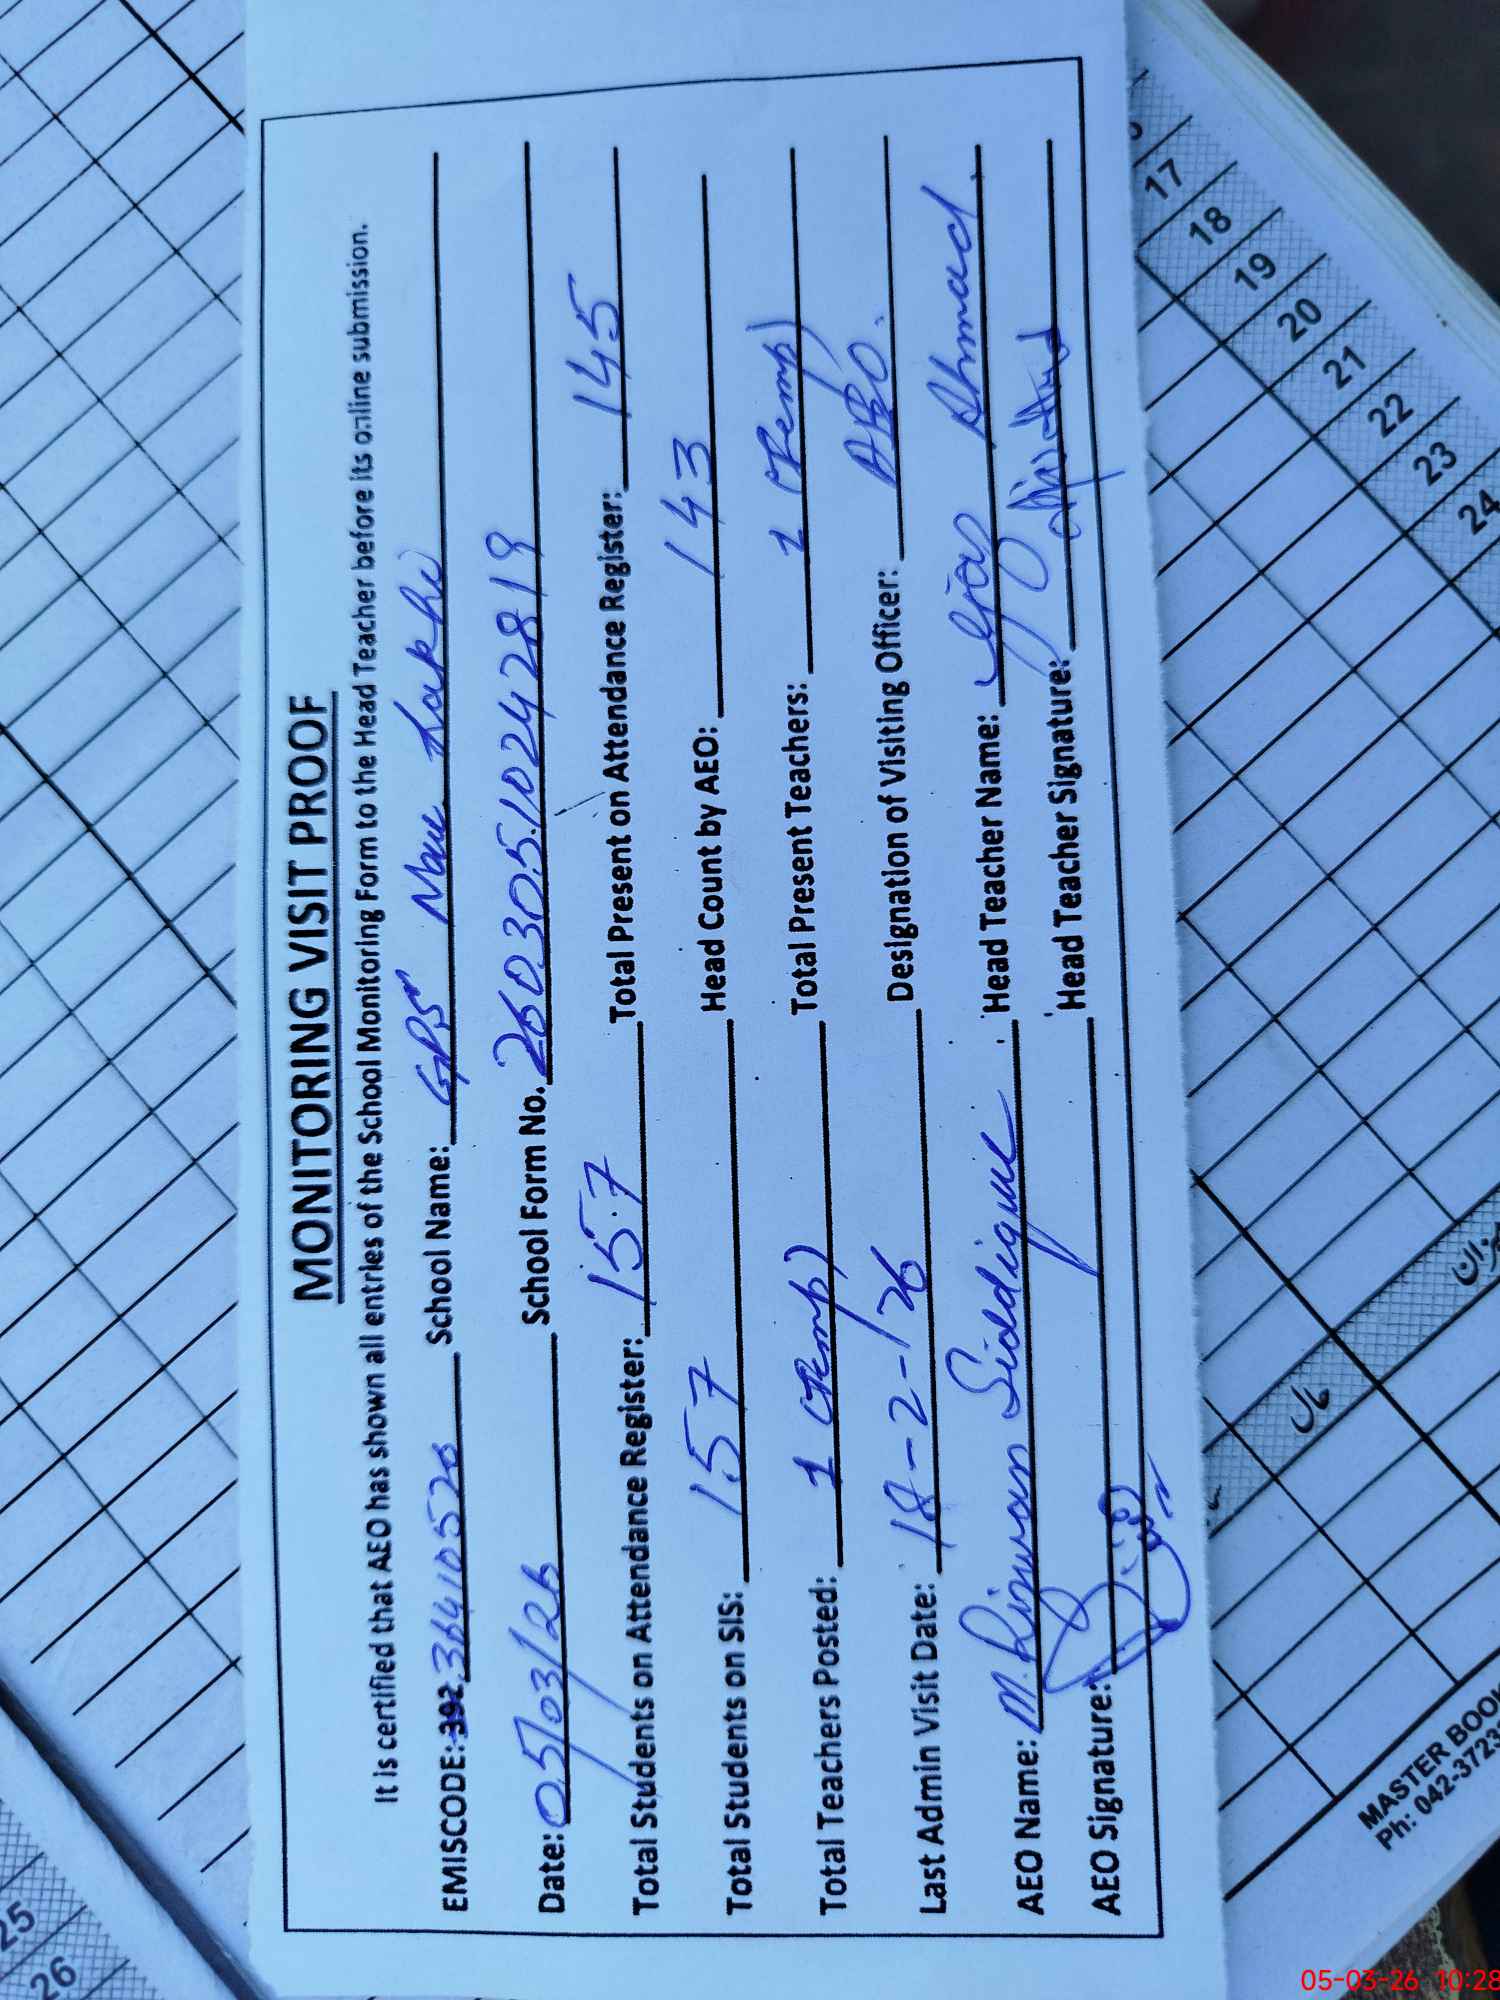 MONITORING VISIT PROOF
It is certified that AEO has shown all entries of the School Monitoring Form to the Head Teacher before its online submission.
EMISCODE: 36410520 School Name: GPS Naul Lakhi
Date: 05/03/26 School Form No. 26030510242819
Total Students on Attendance Register: 157 Total Present on Attendance Register: 145
Total Students on SIS: 157 Head Count by AEO: 143
Total Teachers Posted: 1 (Temp) Total Present Teachers: 1 (Temp)
Last Admin Visit Date: 18-2-26 Designation of Visiting Officer: AEO.
AEO Name: M. Rizwan Siddique Head Teacher Name: Ijaz Ahmad
AEO Signature: Head Teacher Signature:
17
18
19
20
21
22
23
24
25
26
میزان
حال
MASTER BOOK
Ph: 042-3723
05-03-26 10:28